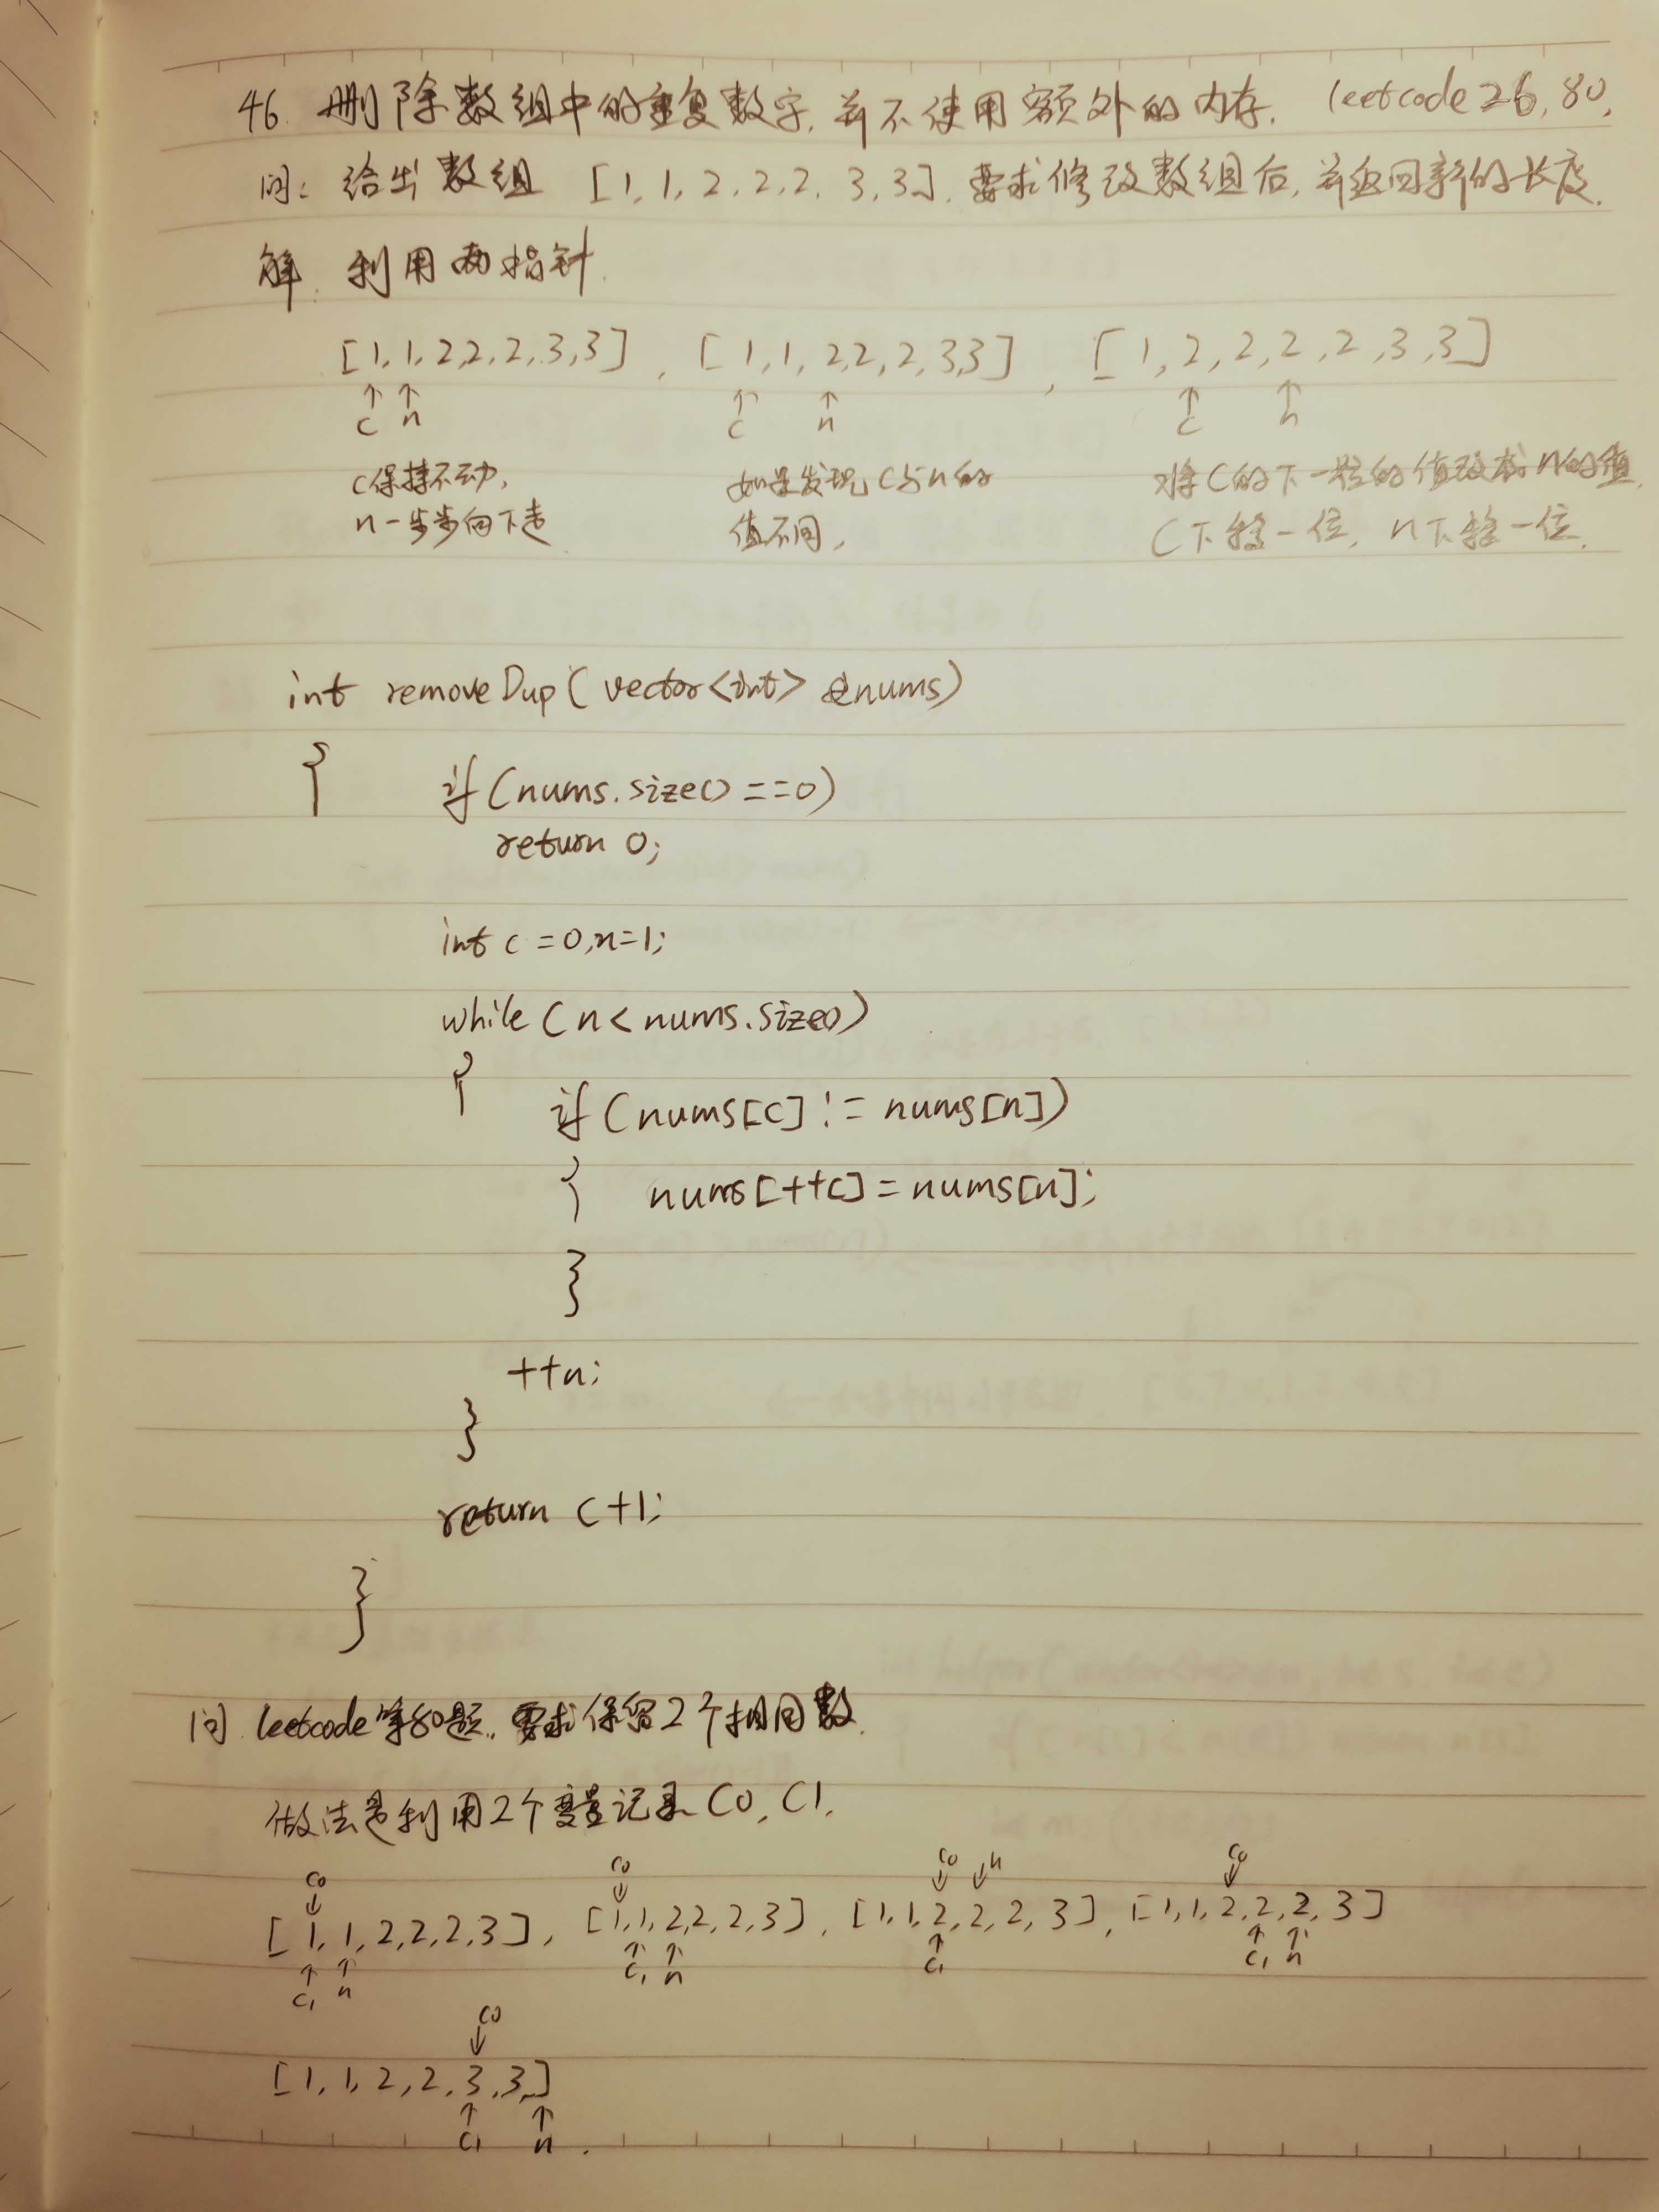 46. 删除数组中的重复数字, 并不使用额外的内存. leetcode 26, 80,
问: 给出数组 [1, 1, 2, 2, 2, 3, 3]. 要求修改数组后, 并返回新的长度.
解. 利用两指针.
[1, 1, 2, 2, 2, 3, 3] , [1, 1, 2, 2, 2, 3, 3] , [1, 2, 2, 2, 2, 3, 3]
↑ ↑ ↑ ↑ ↑ ↑
c n c n c n
c保持不动, 如果发现c与n的 将c的下一位的值改成n的值,
n一步步向下走 值不同, c下移一位, n下移一位.
int removeDup( vector<int> &nums)
{ if (nums.size() ==0)
return 0;
int c =0,n=1;
while (n< nums.size())
{
if (nums[c] != nums[n])
{ nums[++c] = nums[n];
}
++n;
}
return c+1;
}
问. leetcode第80题, 要求保留2个相同数.
做法是利用2个变量记录 C0, C1.
c0 c0 c0 n c0
↓ ↓ ↓ ↓ ↓
[1, 1, 2, 2, 2, 3] , [1, 1, 2, 2, 2, 3] , [1, 1, 2, 2, 2, 3] , [1, 1, 2, 2, 2, 3]
↑ ↑ ↑ ↑ ↑ ↑ ↑
c1 n c1 n c1 c1 n
c0
↓
[1, 1, 2, 2, 3, 3]
↑ ↑
c1 n .